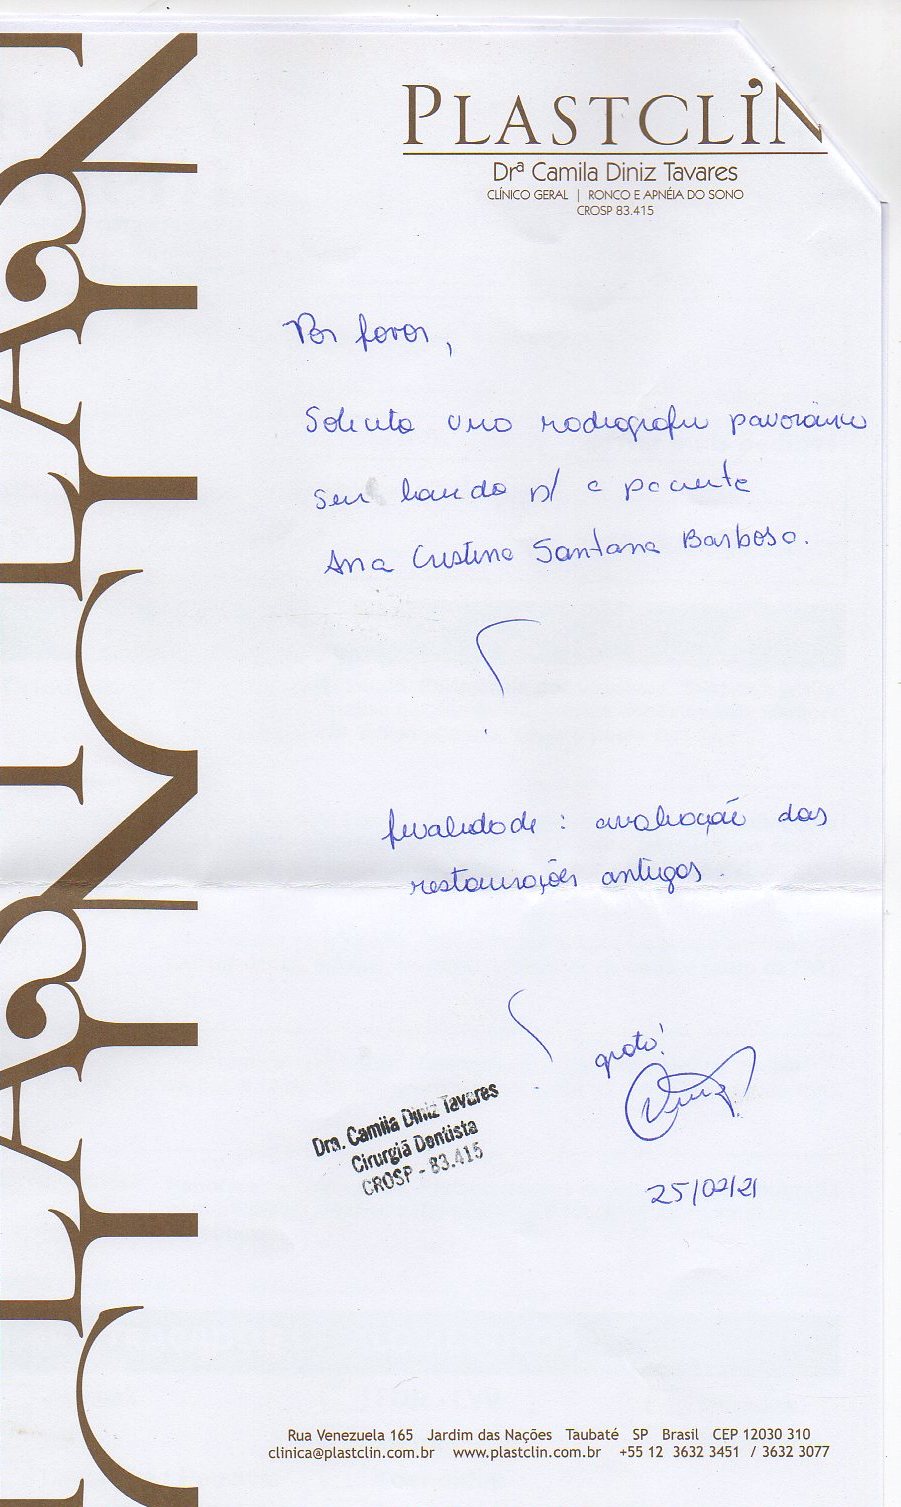 PLASTCLIN
Drª Camila Diniz Tavares
CLÍNICO GERAL | RONCO E APNÉIA DO SONO
CROSP 83.415
Por favor,
Solicito uma radiografia panorâmica
sem laudo p/ a paciente
Ana Cristina Santana Barbosa.
finalidade : avaliação das
restaurações antigas.
grata!
Dra. Camila Diniz Tavares
Cirurgiã Dentista
CROSP - 83.415
25/02/21
Rua Venezuela 165 Jardim das Nações Taubaté SP Brasil CEP 12030 310
clinica@plastclin.com.br www.plastclin.com.br +55 12 3632 3451 / 3632 3077